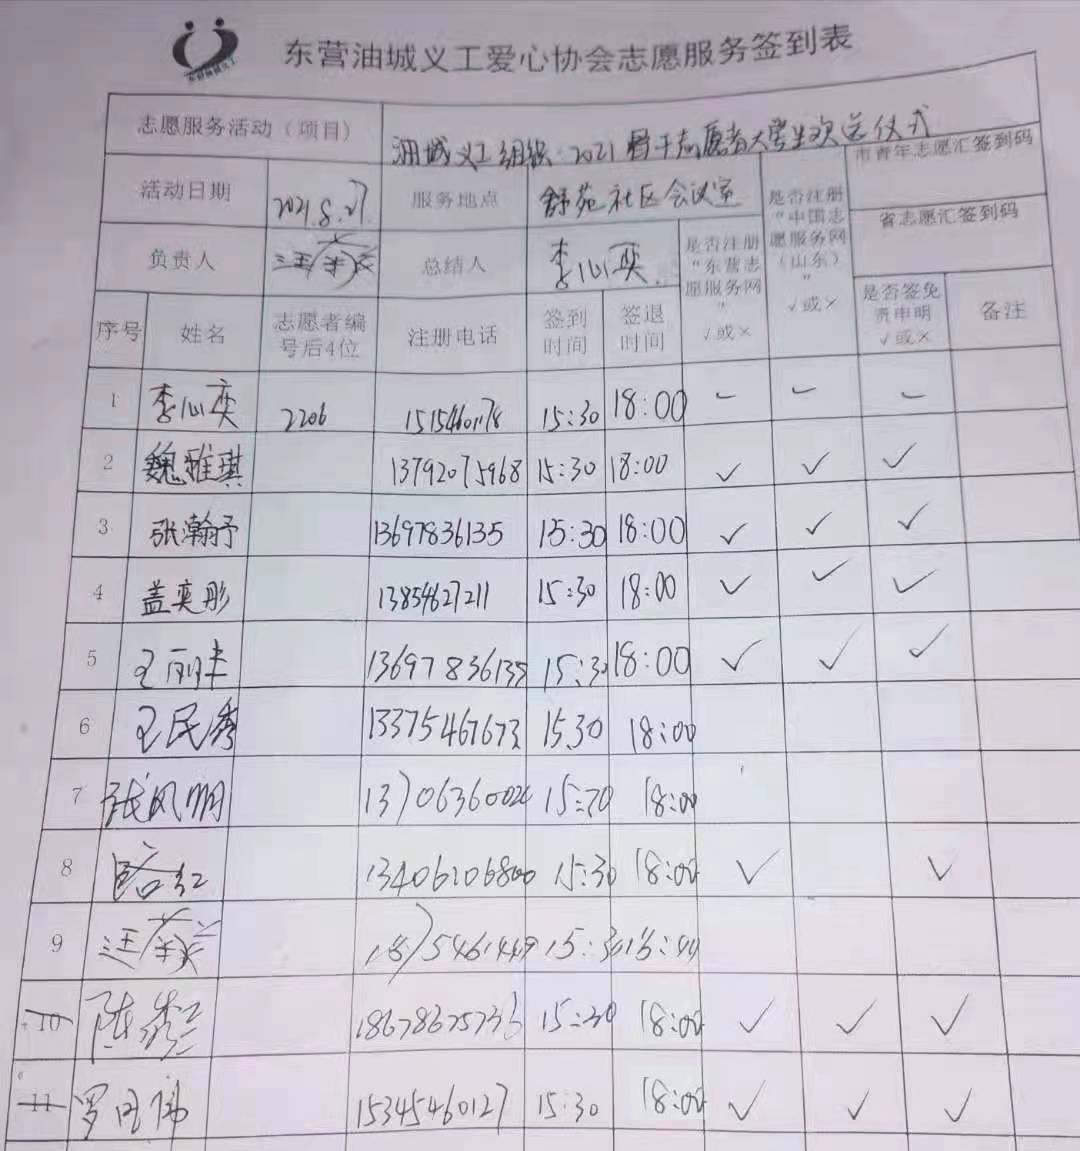 东营油城义工爱心协会志愿服务签到表
志愿服务活动（项目） 油城义工组织·2021骨干志愿者大学生欢送仪式
市青年志愿汇签到码
活动日期 2021.8.27 服务地点 舒苑社区会议室 是否注册“中国志愿服务网（山东）” √或×
省志愿汇签到码
负责人 总结人 李心奕 是否注册“东营志愿服务网” √或×
序号 姓名 志愿者编号后4位 注册电话 签到时间 签退时间 是否签免责申明 √或× 备注
1 李心奕 2206 15154601178 15:30 18:00 – – –
2 魏雅琪 13792075968 15:30 18:00 √ √ √
3 张瀚予 13697836135 15:30 18:00 √ √ √
4 盖奕彤 13854627211 15:30 18:00 √ √ √
5 王丽丰 13697836135 15:30 18:00 √ √ √
6 王民秀 13375467673 15.30 18:00
7 张凤明 13706360026 18:00
8 路红 15:30 18:00 √ √
9 15:30
10 陈 15:30 18:00 √ √ √
11 罗 15345460127 15:30 18:00 √ √ √